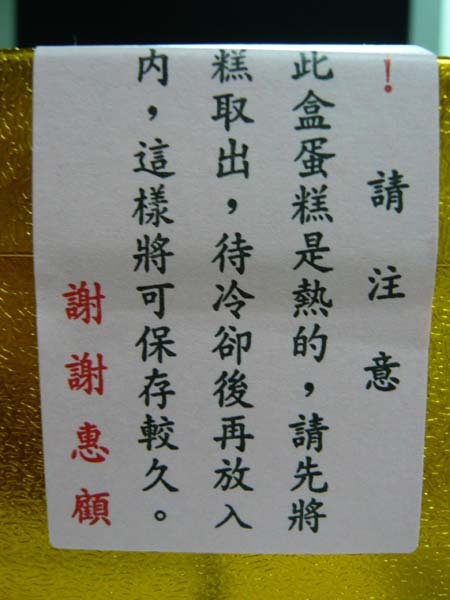 ！請注意
此盒蛋糕是熱的，請先將
糕取出，待冷卻後再放入
內，這樣將可保存較久。
謝謝惠顧